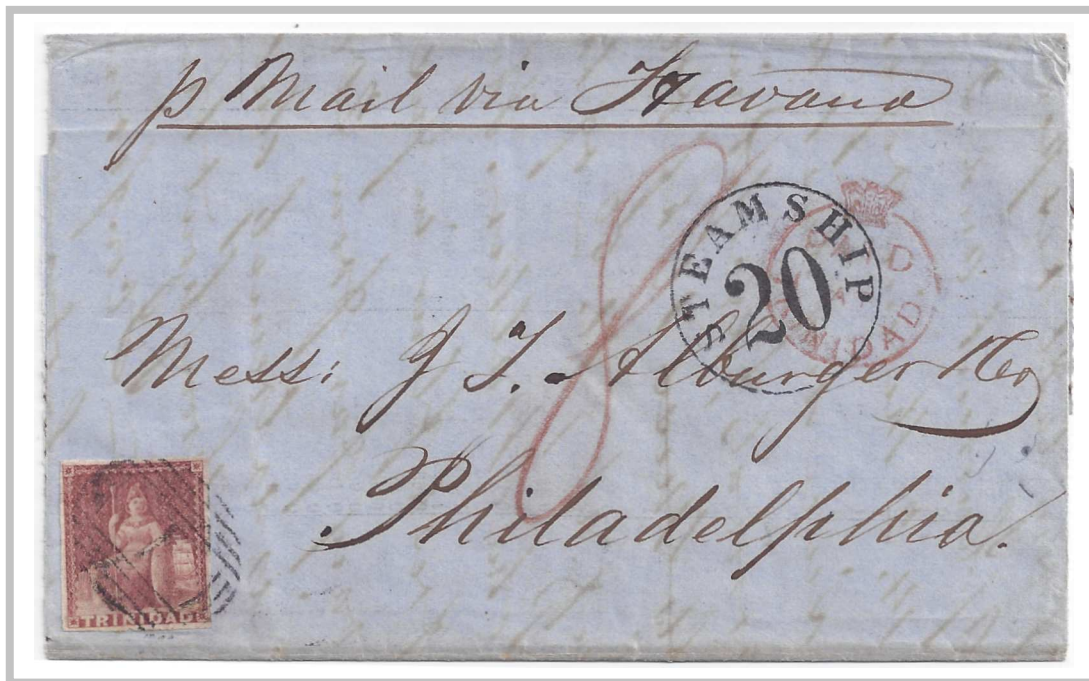 p Mail via Havana
8
STEAMSHIP
20
PAID
TRINIDAD
Mess: J. T. Alburger & Co
Philadelphia.
TRINIDAD